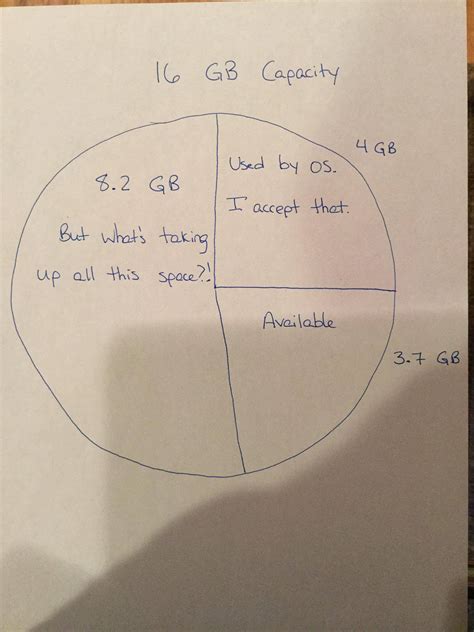 16 GB Capacity
4 GB
Used by OS.
I accept that.
8.2 GB
But what's taking
up all this space?!
Available
3.7 GB